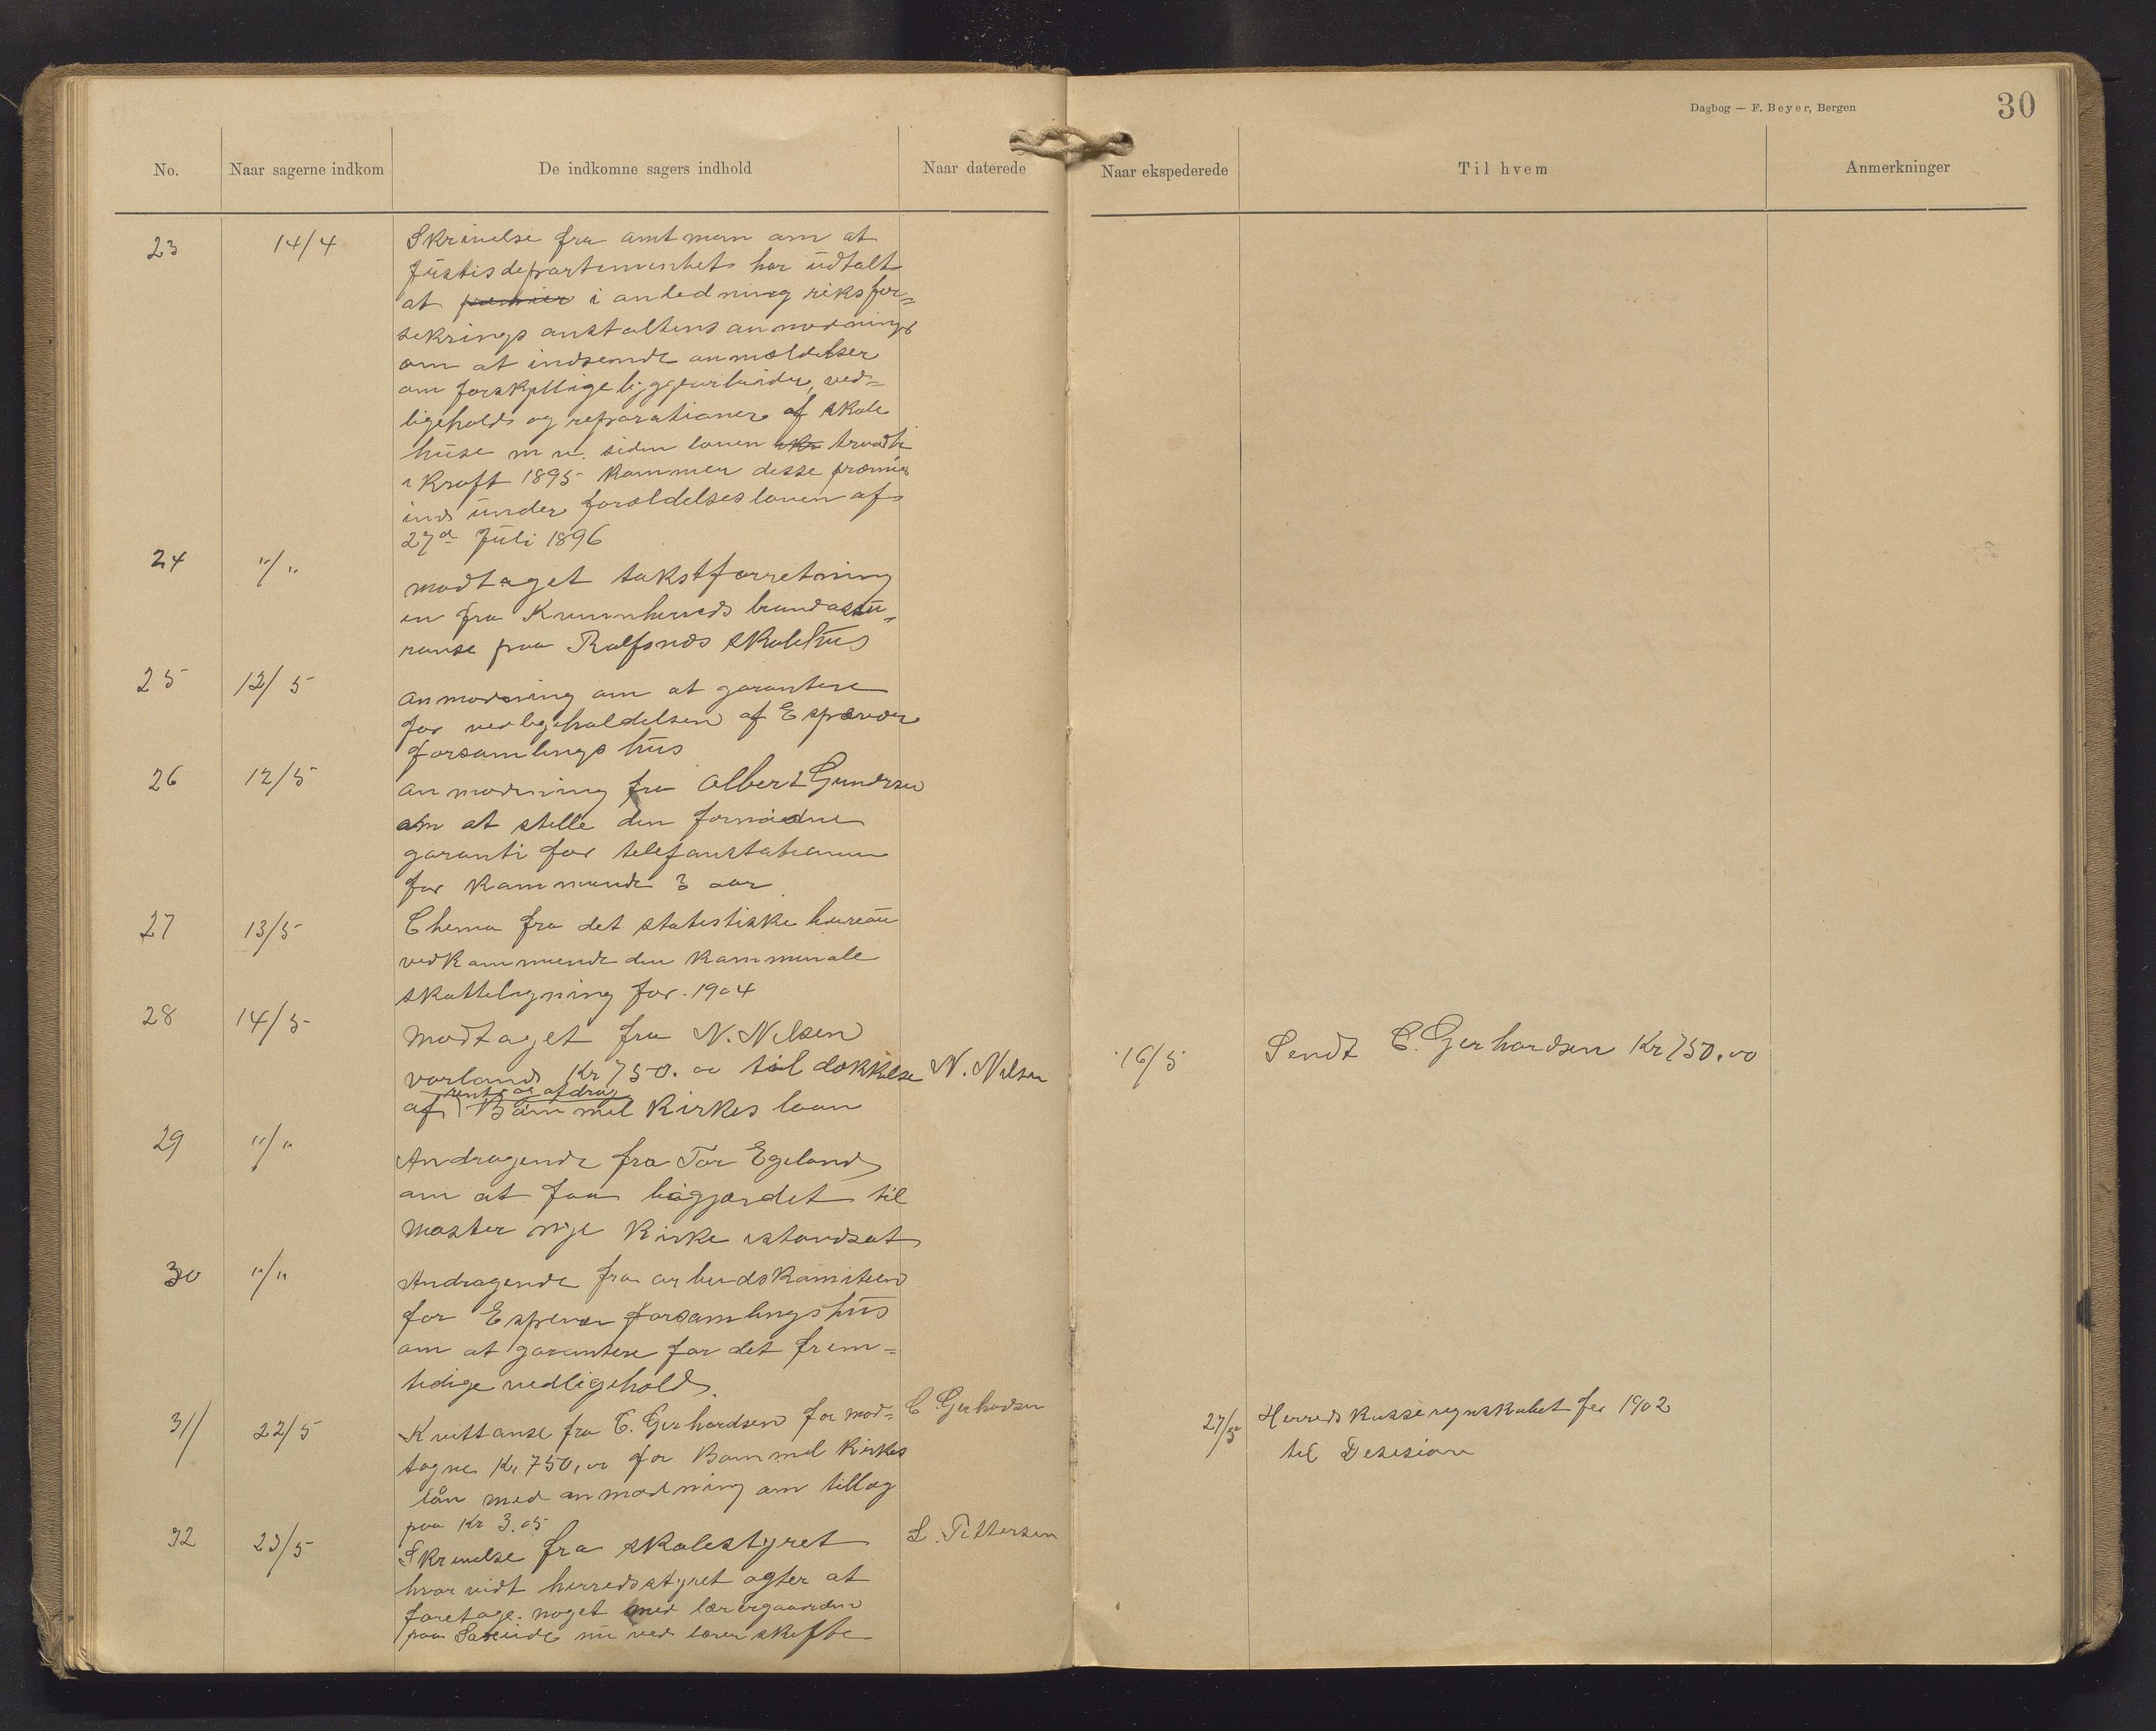 Dagbog — F. Beyer, Bergen
30
No. Naar sagerne indkom De indkomne sagers indhold Naar daterede Naar ekspederede Til hvem Anmerkninger
23 14/4 Skrivelse fra amtman om at
Justisdepartementet har udtalt
at præmier i anledning riksfor=
sekrings anstaltens anmodnings
om at indsende anmældelser
om forskjellige byggearbeider, ved=
ligehold og reparationer af skole
huse m v. siden loven trædte
i Kraft 1895 kommer disse præmier
ind under foreldelsesloven af
27de Juli 1896
24 "/" modtaget takstforretning
en fra Kvinnherreds brandassu=
ranse paa Rolfsnes skolehus
25 12/5 anmodning om at garantere
for vedligeholdelsen af Espevær
forsamlingshus
26 12/5 anmodning fra Albert Gundersen
om at stelle den fornødne
garanti for telefonstationen
for kommende 3 aar
27 13/5 Chema fra det statistiske bureau
vedkommende den kommunale
skatteligning for 1904
28 14/5 modtaget fra N. Nilsen
vorland Kr 750.00 til dækkelse N. Nilsen 16/5 Sendt C. Gerhardsen Kr 750.00
rente og afdrag
af Bømmel Kirkes laan
29 "/" Andragende fra Tor Egeland
om at faa højgjærdet til
Moster nye Kirke istandsat
30 "/" Andragende fra arbeidskomiteen
for Espevær forsamlingshus
om at garantere for det frem=
tidige vedligehold.
31 22/5 Kvittanse fra C. Gerhardsen for mod= C Gerhardsen 27/5 Herredskasseregnskabet for 1902
tagne Kr 750,00 for Bømmel Kirkes til Desision
lån med anmodning om tillæg
paa Kr 3.05
32 23/5 Skrivelse fra skolestyret L. Pettersen
hvor vidt herredsstyret agter at
foretage noget med lærergaarden
paa nu ved lærer skifte